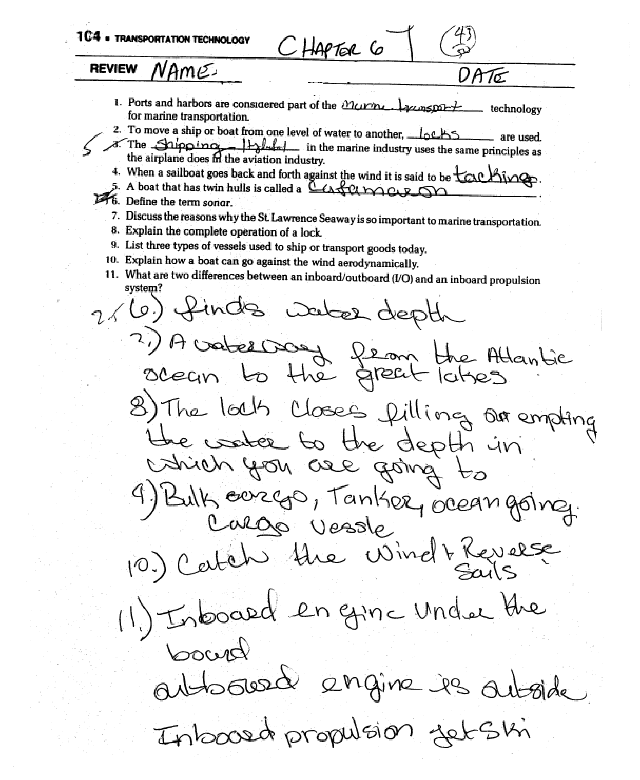 104 ▪ TRANSPORTATION TECHNOLOGY CHAPTER 6 43
REVIEW NAME- DATE
1. Ports and harbors are considered part of the Marine transport technology
for marine transportation.
2. To move a ship or boat from one level of water to another, locks are used.
5 3. The Shipping in the marine industry uses the same principles as
the airplane does in the aviation industry.
4. When a sailboat goes back and forth against the wind it is said to be tacking.
5. A boat that has twin hulls is called a Catamaron
6. Define the term sonar.
7. Discuss the reasons why the St. Lawrence Seaway is so important to marine transportation.
8. Explain the complete operation of a lock.
9. List three types of vessels used to ship or transport goods today.
10. Explain how a boat can go against the wind aerodynamically.
11. What are two differences between an inboard/outboard (I/O) and an inboard propulsion
system?
6.) finds water depth
7.) A waterway from the Atlantic
ocean to the great lakes
8.) The lock closes filling or empting
the water to the depth in
which you are going to
9.) Bulk cargo, Tanker, ocean going
Cargo Vessle
10.) Catch the Wind & Reverse
Sails
11.) Inboard engine Under the
board
outboard engine is outside
Inboard propulsion jet Ski